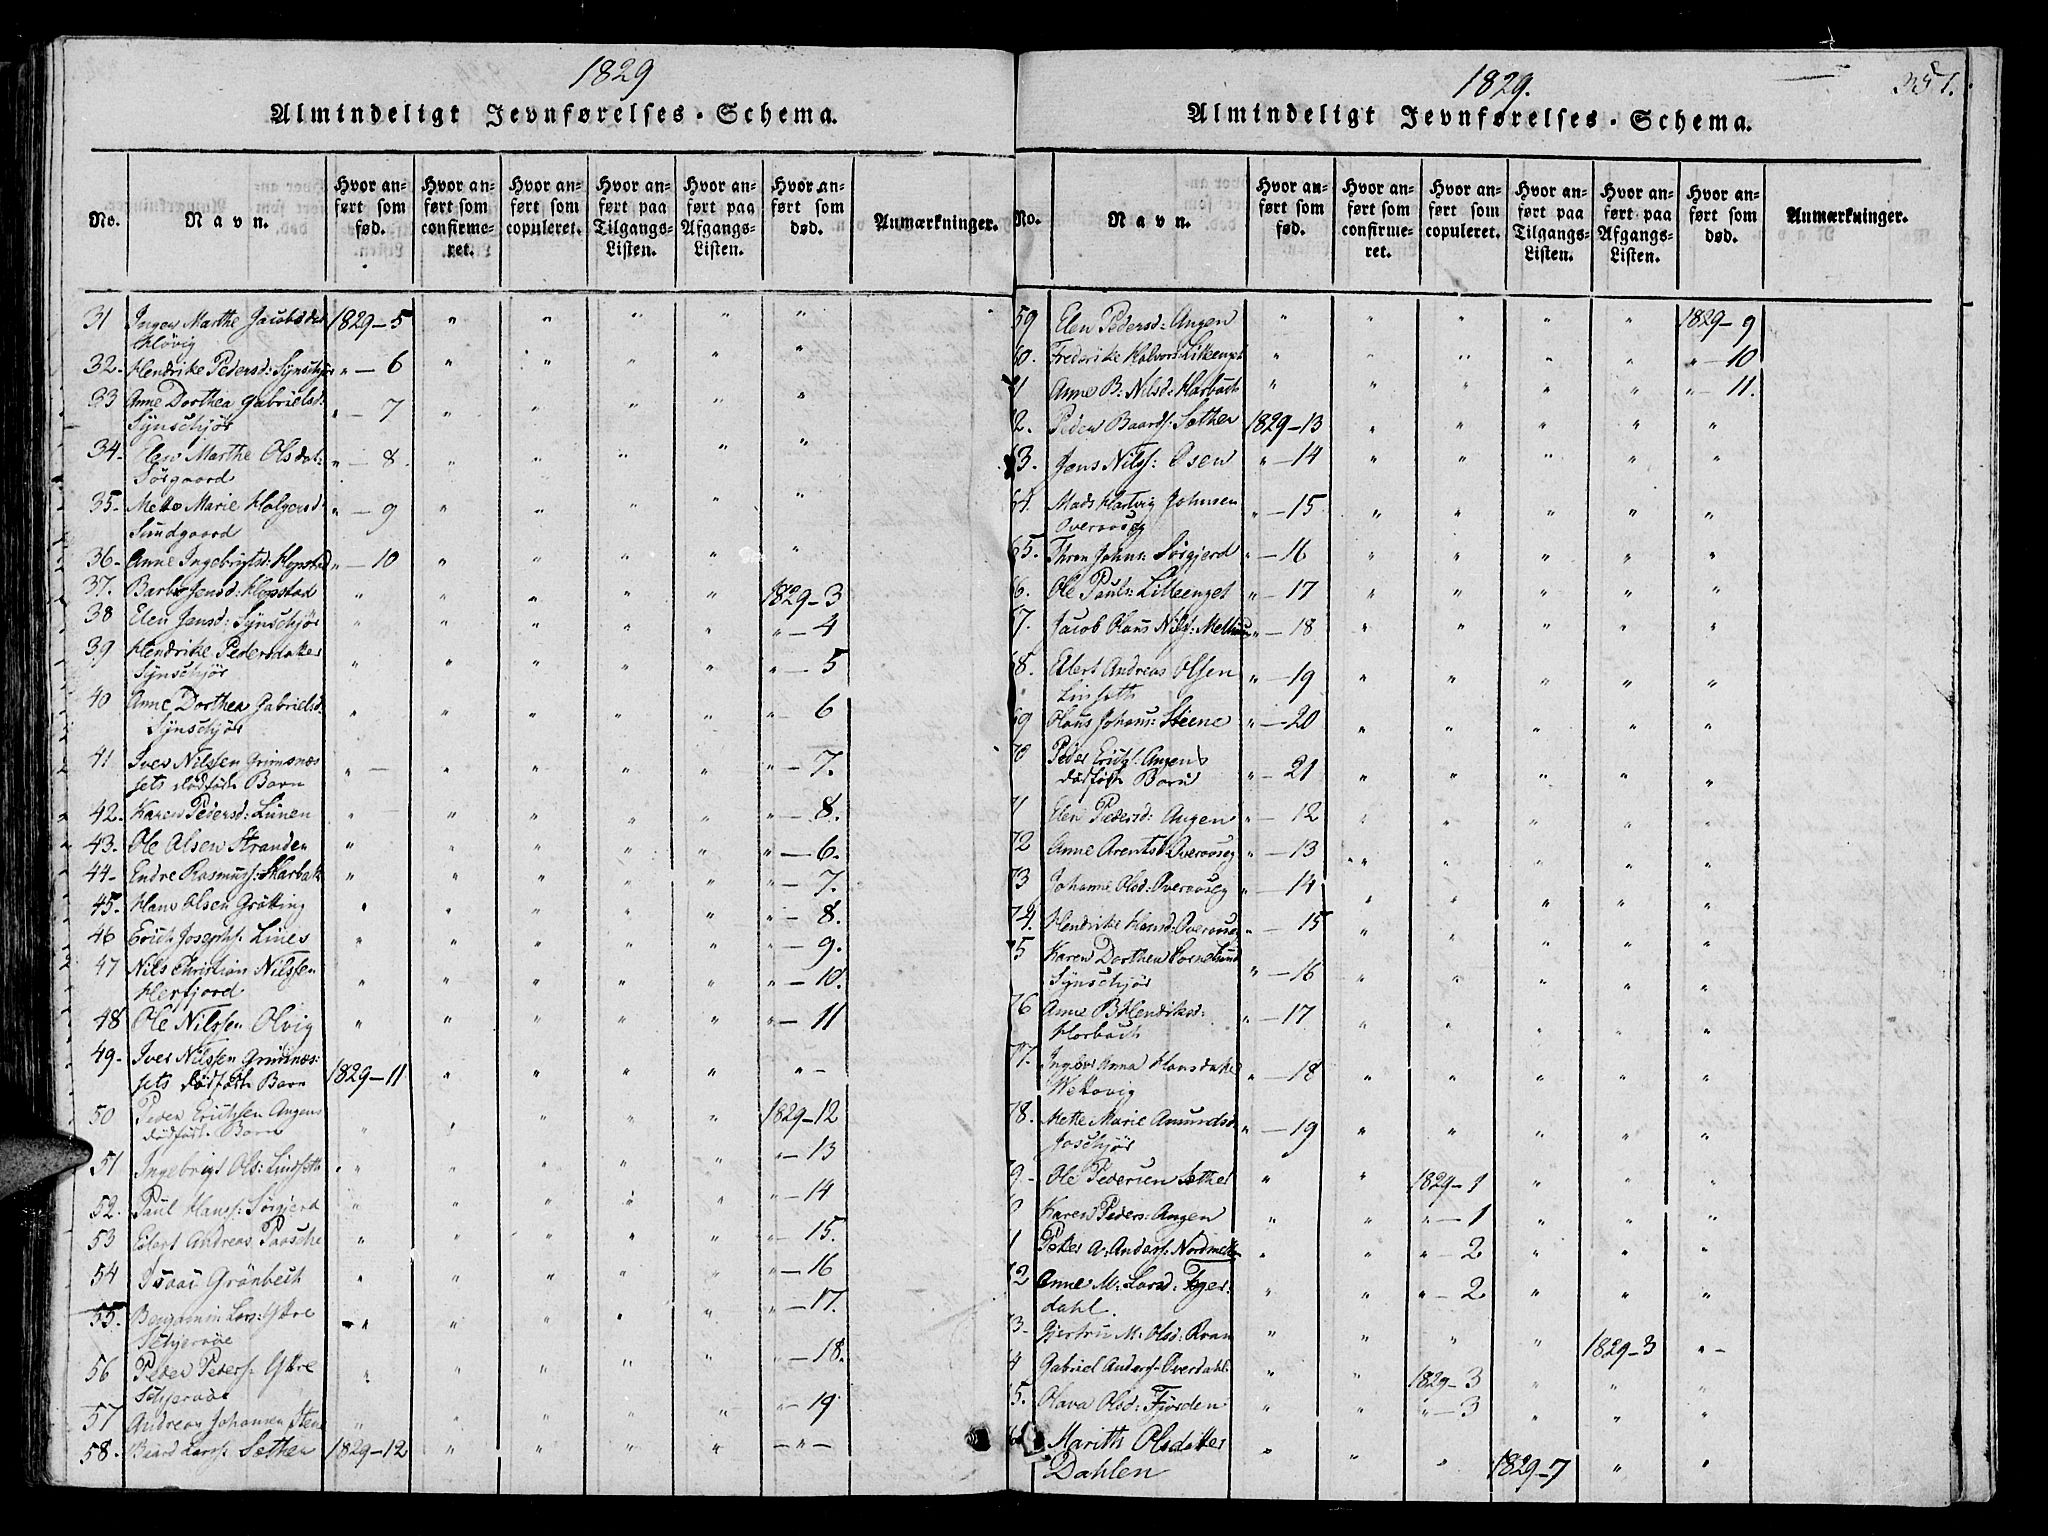 1829
Almindeligt Jevnførelses-Schema.
No.
Navn.
Hvor anført som fød.
Hvor anført som confirmeret.
Hvor anført som copuleret.
Hvor anført paa Tilgangs-Listen.
Hvor anført paa Afgangs-Listen.
Hvor anført som død.
Anmærkninger.
31 Inger Marthe Jacobsdat 1829-5 " " " " "
Høvig
32. Hendrike Pedersd: Synschjør " - 6 " " " " "
33 Anne Dorthea Gabrielsd: " - 7 " " " " "
Synschjør
34. Elen Marthe Olsdat: " - 8. " " " " "
Sørgaard
35. Mette Marie Holgersd: " - 9 " " " " "
Sundgaard
36. Anne Ingebrigtsd: Hopstad " - 10 " " " " "
37. Barbe Jensd: Hopstad " " " " " 1829-3
38 Elen Jensd: Synschjør " " " " " " - 4
39 Hendrike Pedersdatter " " " " " " - 5
Synschjør
40 Anne Dorthea Gabrielsd. " " " " " " - 6
Synschjør
41 Iver Nilssen Grimsnæs " - " " " " " - 7.
sets dødfødte Barn
42. Karen Pedersd: Lünen " " " " " " - 8.
43. Ole Olsen Stranden " " " " " " - 6.
44. Endre Rasmuss: Harbak " " " " " " - 7.
45. Hans Olsen Grøtting " " " " " " - 8.
46 Erich Josephs: Lines " " " " " " - 9.
47 Nils Christian Nilssen " " " " " " - 10.
Herfjord
48 Ole Nilssen Olvig " " " " " " - 11
49. Iver Nilssen Grimnæs: 1829-11 " " " " " -
sets dødfødte Barn
50 Peder Erichsen Angens " " " " " 1829-12
dødfødte Barn
51 Ingebrigt Ols: Lindseth " " " " " " - 13
52. Paul Hanss: Sørgjerd " " " " " " - 14
53 Eilert Andreas Paasche " " " " " " - 15.
54 Isaac Grönbech " " " " " " - 16
55. Benjamin Lars: Ystre " " " " " " - 17.
Schjerøe
56 Peder Peders: Ystre " " " " " " - 18.
Schjerøe
57 Andreas Johansen Steen " " " " " " - 19
58. Baard Larss: Sether 1829-12 " " " " - " -
1829.
351.
Almindeligt Jevnførelses-Schema.
No.
Navn.
Hvor anført som fød.
Hvor anført som confirmeret.
Hvor anført som copuleret.
Hvor anført paa Tilgangs-Listen.
Hvor anført paa Afgangs-Listen.
Hvor anført som død.
Anmærkninger.
59 Elen Pedersd: Angen " " " " " 1829-9
60. Frederike Halvors: Litleenget " " " " " " - 10
1 Anne B: Nilsd: Harbach " " " " " " - 11.
2. Peder Baards: Sæther 1829-13 " " " " "
3. Jens Nilss: Osen " - 14 " " " " "
64. Mads Hartvig Johnsen " - 15 " " " " "
Overaaseg
65. Thron Johns: Sørgjerd " - 16 " " " " "
6. Ole Pauls: Litleenget " - 17 " " " " "
7. Jacob Olaus Nils: " - 18 " " " " "
8. Eilert Andreas Olsen " - 19 " " " " "
Linseth
69 Olaus Johans: Steene " - 20 " " " " "
70 Peder Erichs: Angens " - 21 " " " " "
dødfødte Barn
71 Elen Pedersd: Angen " - 12 " " " " "
72 Anne Arentsd: Overaaseg " - 13 " " " " "
73 Johanne Olsd: Overaaseg " - 14 " " " " "
74. Hendrike Hansd: Overaaseg " - 15 " " " " "
75 Karen Dorthea " - 16 " " " " "
Synschjør
76 Anne B Hendriksd: " - 17 " " " " "
Horbach
77. Anna Hansdatter " - 18 " " " " "
Wettavig
78. Mette Marie Amundsd " - 19 " " " " "
Joschjør
9. Ole Pedersen Sæther " " 1829-1 " " "
Karen Peders: Angen " " " - 1 " " "
1 Peter A: Anders: " " " - 2 " " "
2 Anne M: Larsd: Teger- " " " - 2 " " "
dahl.
3. Gjertru M: Olsd: Kvan " " " " 1829-3 " -
4 Gabriel Anders: Overdahl: " " 1829-3 " " "
5. Olava Olsd: Fjorden " " " - 3 " " "
Marith Olsdatter " " " 1829-7 " "
Dahlen